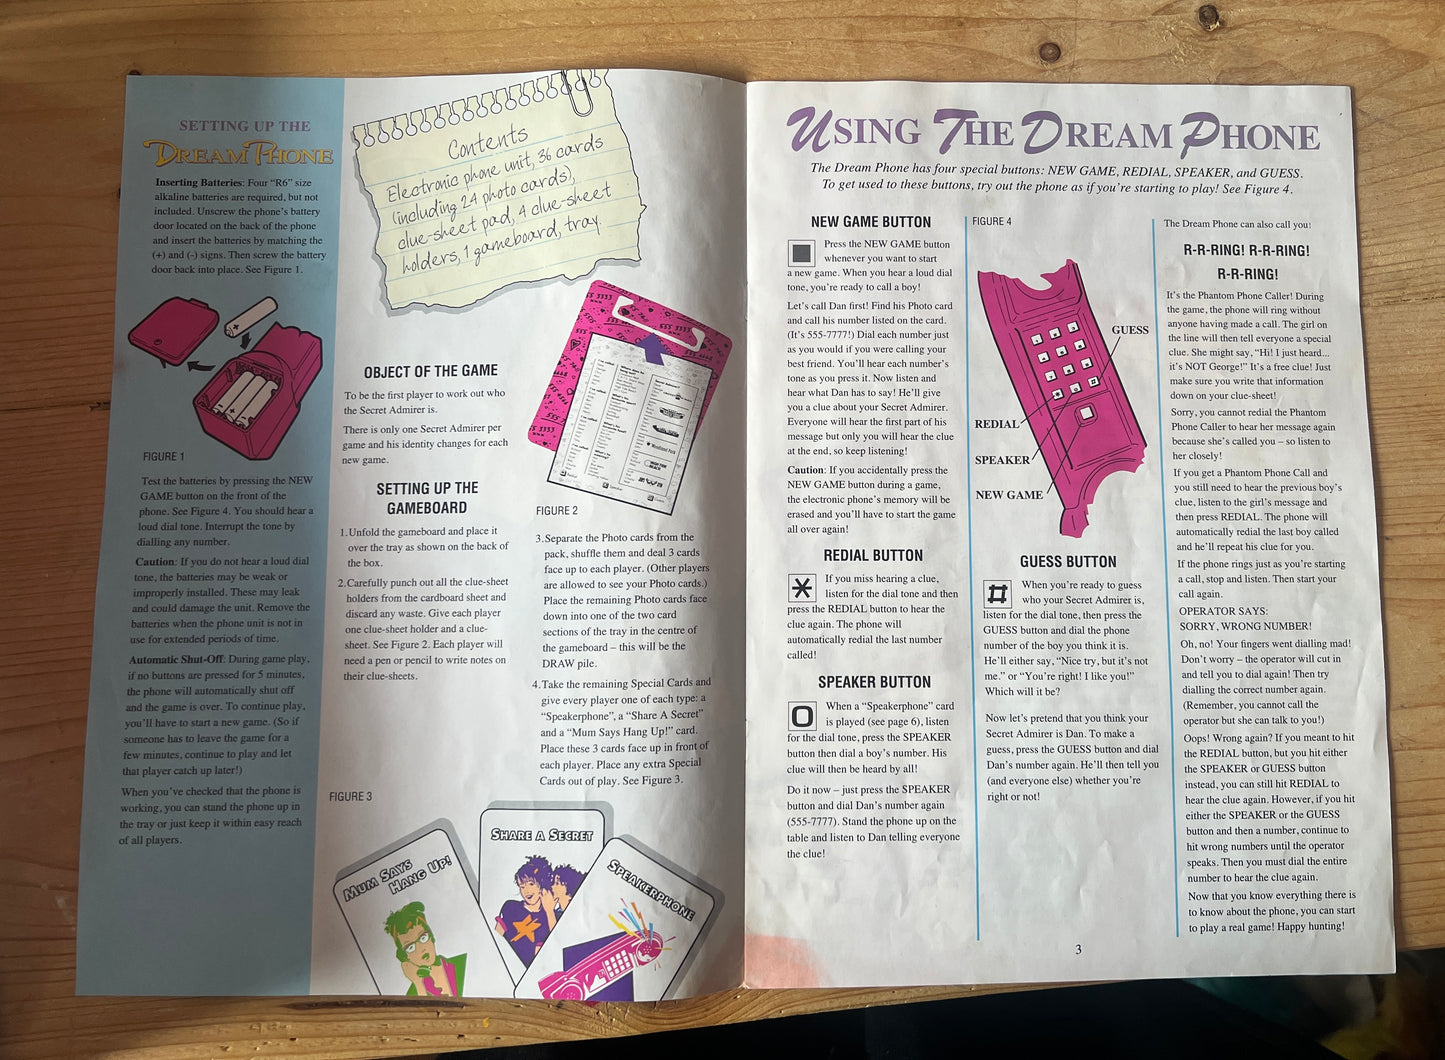 SETTING UP THE
DREAM PHONE
Inserting Batteries: Four "R6" size
alkaline batteries are required, but not
included. Unscrew the phone's battery
door located on the back of the phone
and insert the batteries by matching the
(+) and (-) signs. Then screw the battery
door back into place. See Figure 1.
FIGURE 1
Test the batteries by pressing the NEW
GAME button on the front of the
phone. See Figure 4. You should hear a
loud dial tone. Interrupt the tone by
dialling any number.
Caution: If you do not hear a loud dial
tone, the batteries may be weak or
improperly installed. These may leak
and could damage the unit. Remove the
batteries when the phone unit is not in
use for extended periods of time.
Automatic Shut-Off: During game play,
if no buttons are pressed for 5 minutes,
the phone will automatically shut off
and the game is over. To continue play,
you'll have to start a new game. (So if
someone has to leave the game for a
few minutes, continue to play and let
that player catch up later!)
When you've checked that the phone is
working, you can stand the phone up in
the tray or just keep it within easy reach
of all players.
Contents
Electronic phone unit, 36 cards
(including 24 photo cards),
clue-sheet pad, 4 clue-sheet
holders, 1 gameboard, tray.
OBJECT OF THE GAME
To be the first player to work out who
the Secret Admirer is.
There is only one Secret Admirer per
game and his identity changes for each
new game.
SETTING UP THE
GAMEBOARD
1.Unfold the gameboard and place it
over the tray as shown on the back of
the box.
2.Carefully punch out all the clue-sheet
holders from the cardboard sheet and
discard any waste. Give each player
one clue-sheet holder and a clue-
sheet. See Figure 2. Each player will
need a pen or pencil to write notes on
their clue-sheets.
FIGURE 2
3.Separate the Photo cards from the
pack, shuffle them and deal 3 cards
face up to each player. (Other players
are allowed to see your Photo cards.)
Place the remaining Photo cards face
down into one of the two card
sections of the tray in the centre of
the gameboard – this will be the
DRAW pile.
4.Take the remaining Special Cards and
give every player one of each type: a
"Speakerphone", a "Share A Secret"
and a "Mum Says Hang Up!" card.
Place these 3 cards face up in front of
each player. Place any extra Special
Cards out of play. See Figure 3.
FIGURE 3
MUM SAYS
HANG UP!
SHARE A SECRET
SPEAKERPHONE
USING THE DREAM PHONE
The Dream Phone has four special buttons: NEW GAME, REDIAL, SPEAKER, and GUESS.
To get used to these buttons, try out the phone as if you're starting to play! See Figure 4.
NEW GAME BUTTON
Press the NEW GAME button
whenever you want to start
a new game. When you hear a loud dial
tone, you're ready to call a boy!
Let's call Dan first! Find his Photo card
and call his number listed on the card.
(It's 555-7777!) Dial each number just
as you would if you were calling your
best friend. You'll hear each number's
tone as you press it. Now listen and
hear what Dan has to say! He'll give
you a clue about your Secret Admirer.
Everyone will hear the first part of his
message but only you will hear the clue
at the end, so keep listening!
Caution: If you accidentally press the
NEW GAME button during a game,
the electronic phone's memory will be
erased and you'll have to start the game
all over again!
REDIAL BUTTON
If you miss hearing a clue,
listen for the dial tone and then
press the REDIAL button to hear the
clue again. The phone will
automatically redial the last number
called!
SPEAKER BUTTON
When a "Speakerphone" card
is played (see page 6), listen
for the dial tone, press the SPEAKER
button then dial a boy's number. His
clue will then be heard by all!
Do it now – just press the SPEAKER
button and dial Dan's number again
(555-7777). Stand the phone up on the
table and listen to Dan telling everyone
the clue!
FIGURE 4
GUESS
REDIAL
SPEAKER
NEW GAME
GUESS BUTTON
When you're ready to guess
who your Secret Admirer is,
listen for the dial tone, then press the
GUESS button and dial the phone
number of the boy you think it is.
He'll either say, "Nice try, but it's not
me." or "You're right! I like you!"
Which will it be?
Now let's pretend that you think your
Secret Admirer is Dan. To make a
guess, press the GUESS button and dial
Dan's number again. He'll then tell you
(and everyone else) whether you're
right or not!
The Dream Phone can also call you:
R-R-RING! R-R-RING!
R-R-RING!
It's the Phantom Phone Caller! During
the game, the phone will ring without
anyone having made a call. The girl on
the line will then tell everyone a special
clue. She might say, "Hi! I just heard...
it's NOT George!" It's a free clue! Just
make sure you write that information
down on your clue-sheet!
Sorry, you cannot redial the Phantom
Phone Caller to hear her message again
because she's called you – so listen to
her closely!
If you get a Phantom Phone Call and
you still need to hear the previous boy's
clue, listen to the girl's message and
then press REDIAL. The phone will
automatically redial the last boy called
and he'll repeat his clue for you.
If the phone rings just as you're starting
a call, stop and listen. Then start your
call again.
OPERATOR SAYS:
SORRY, WRONG NUMBER!
Oh, no! Your fingers went dialling mad!
Don't worry – the operator will cut in
and tell you to dial again! Then try
dialling the correct number again.
(Remember, you cannot call the
operator but she can talk to you!)
Oops! Wrong again? If you meant to hit
the REDIAL button, but you hit either
the SPEAKER or GUESS button
instead, you can still hit REDIAL to
hear the clue again. However, if you hit
either the SPEAKER or the GUESS
button and then a number, continue to
hit wrong numbers until the operator
speaks. Then you must dial the entire
number to hear the clue again.
Now that you know everything there is
to know about the phone, you can start
to play a real game! Happy hunting!
3